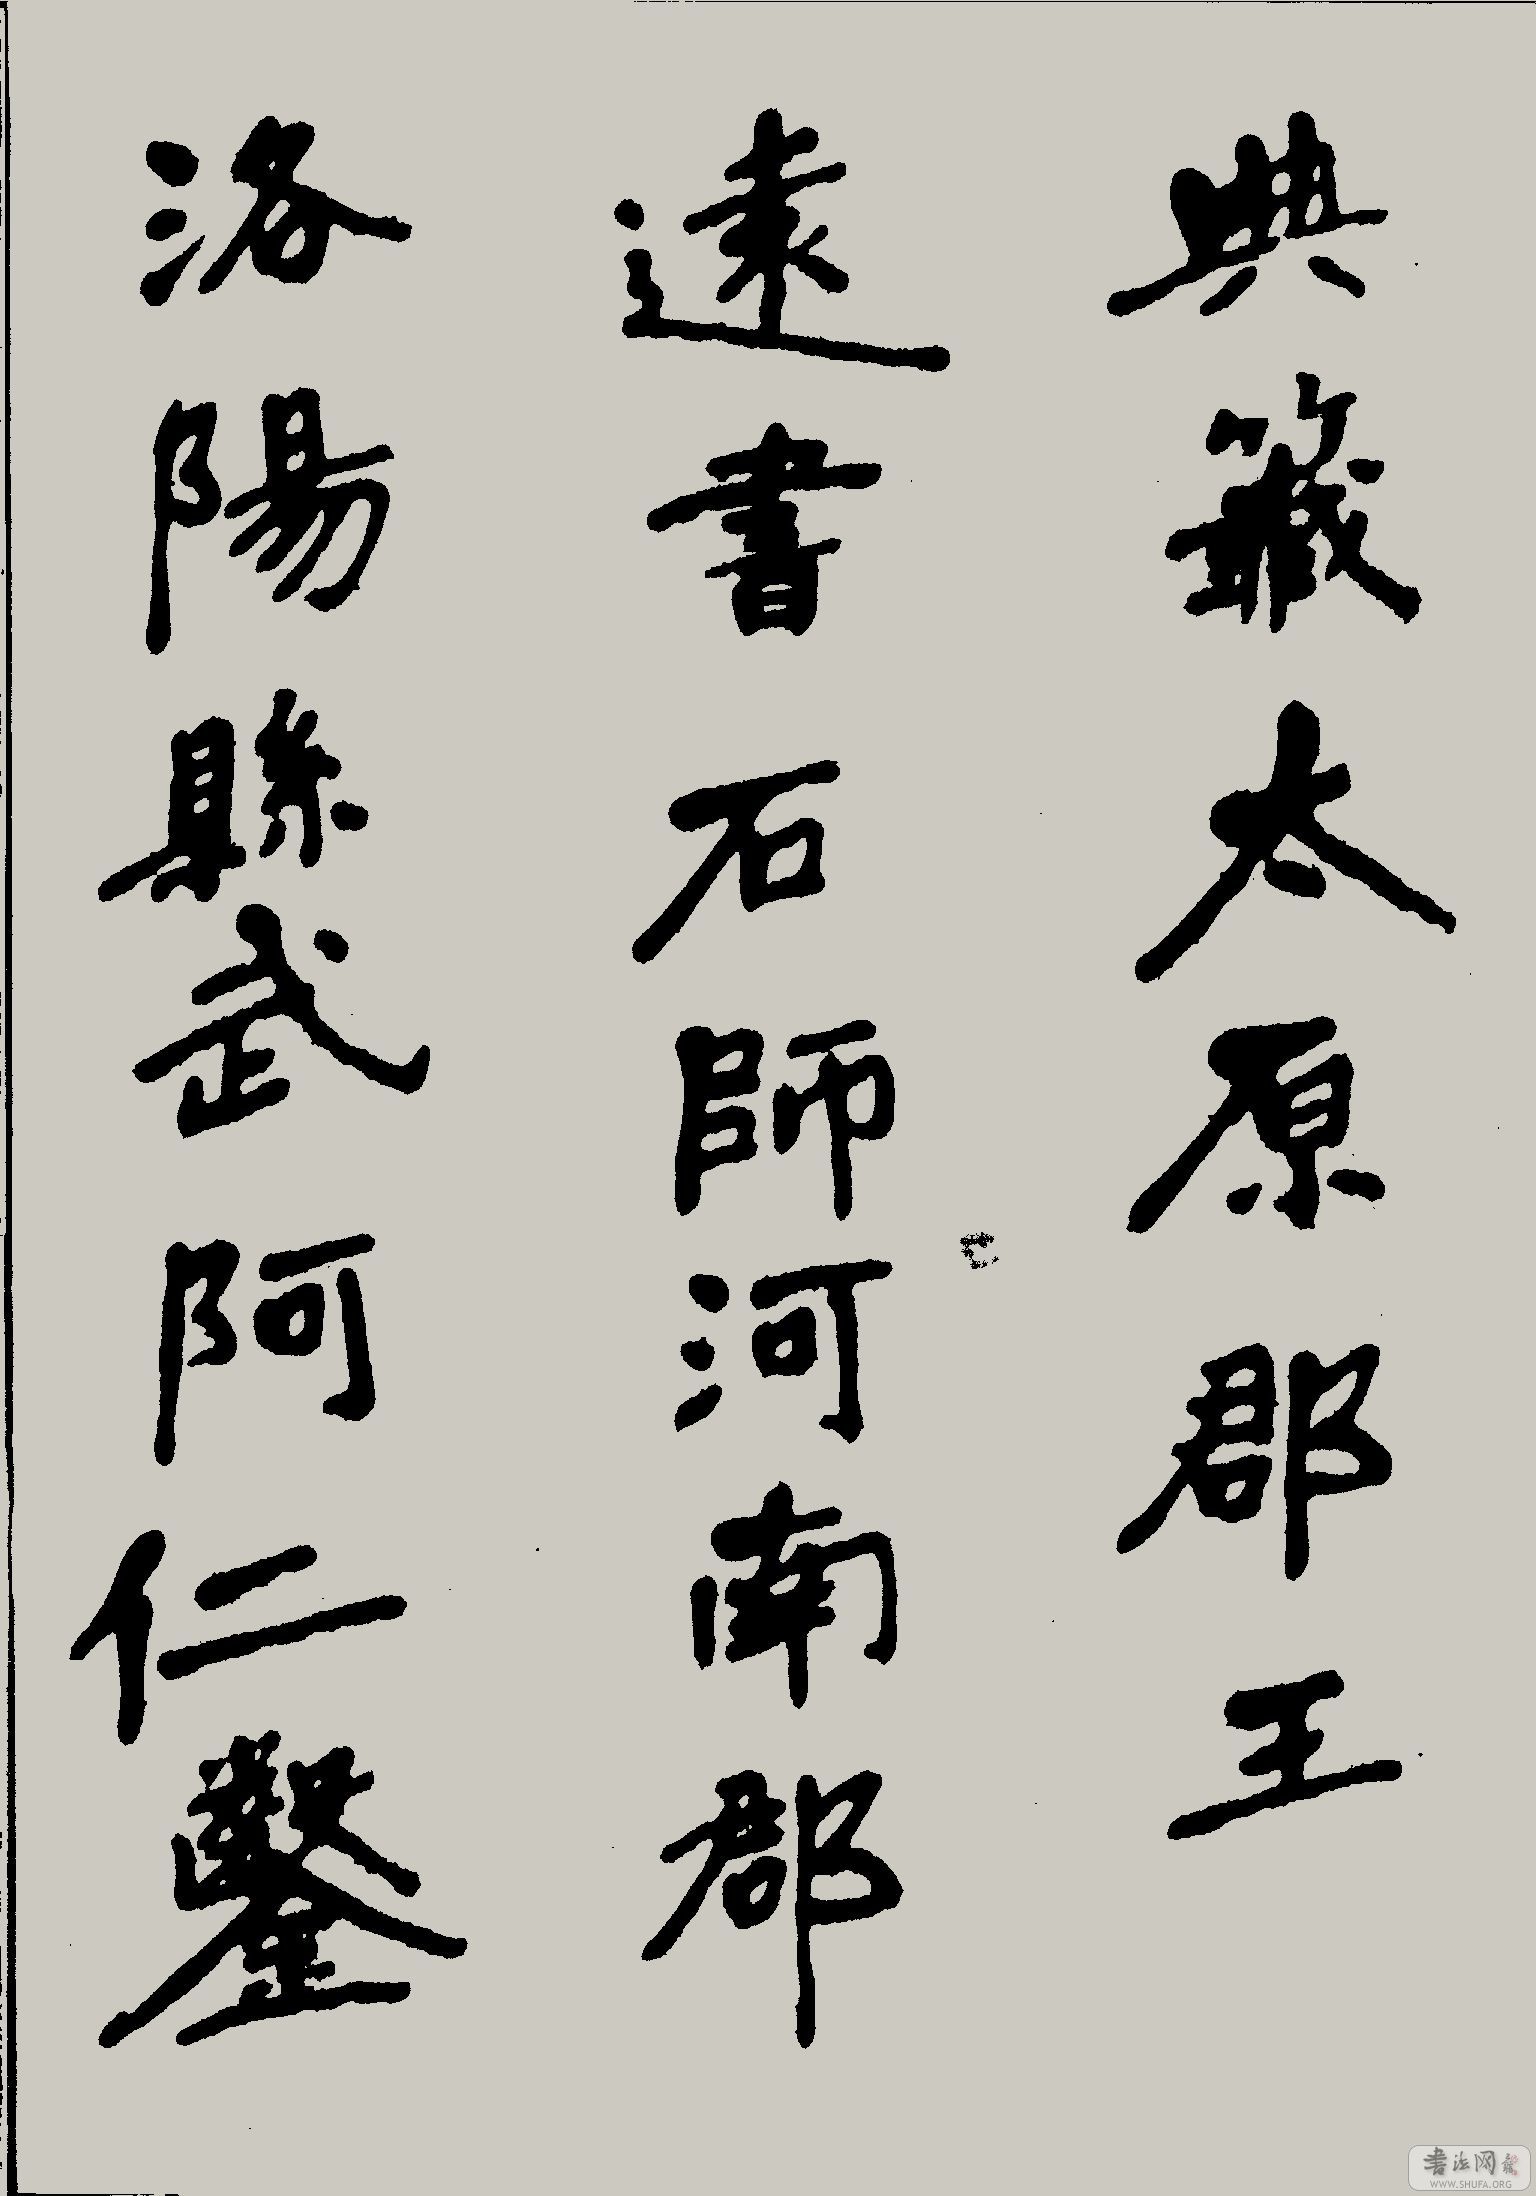 典籤太原郡王
遠書石師河南郡
洛陽縣武阿仁鑿
书法网
WWW.SHUFA.ORG